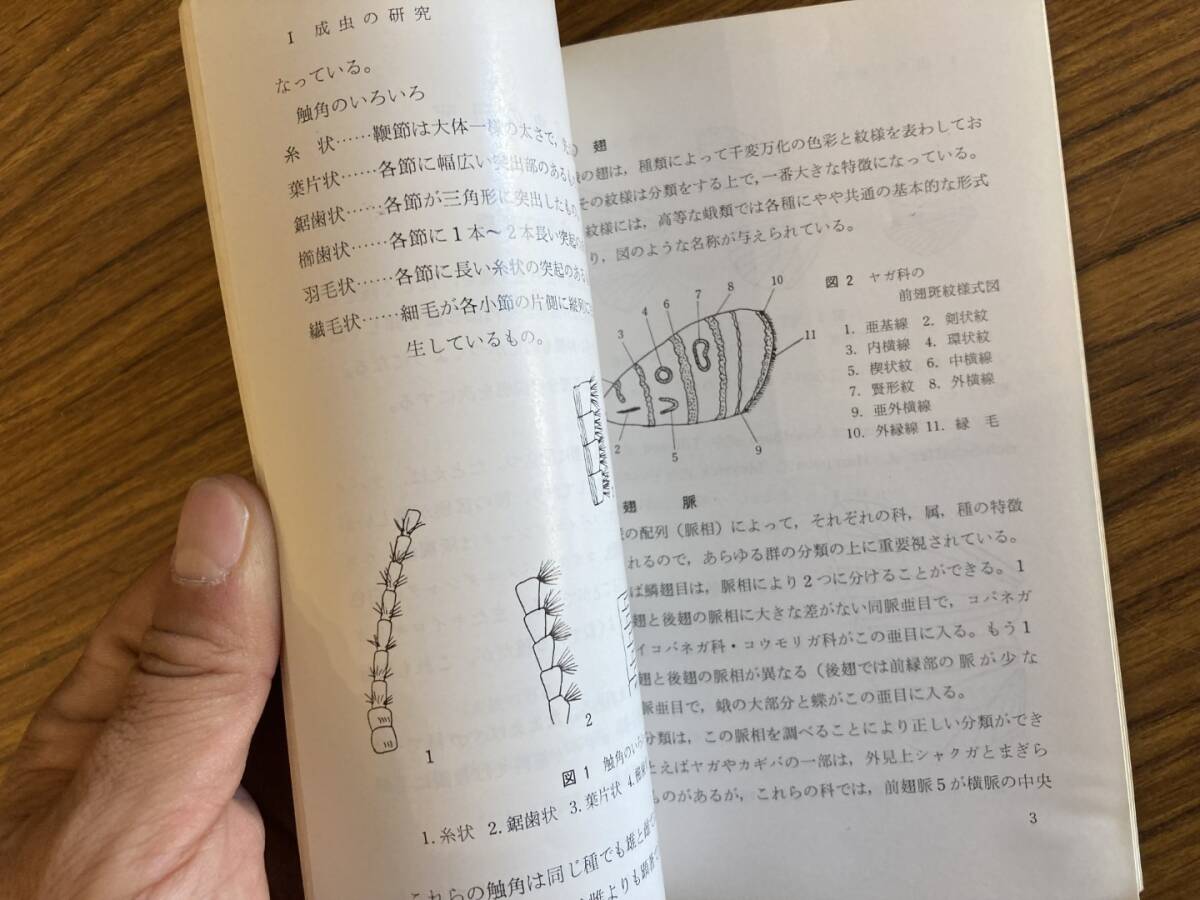 I 成虫の研究
なっている。
触角のいろいろ
糸 状……鞭節は大体一様の太さで,
葉片状……各節に幅広い突出部のあるも
鋸歯状……各節が三角形に突出したもの
櫛歯状……各節に1本〜2本長い突起の
羽毛状……各節に長い糸状の突起のある
繊毛状……細毛が各小節の片側に縦列に
生しているもの。
1
2
図1 触角のいろ
1.糸状 2.鋸歯状 3.葉片状 4.櫛
これらの触角は同じ種でも雄と雌で
雌よりも顕著
翅
の翅は,種類によって千変万化の色彩と紋様を表わしてお
その紋様は分類をする上で,一番大きな特徴になっている。
紋様には,高等な蛾類では各種にやや共通の基本的な形式
り,図のような名称が与えられている。
図2 ヤガ科の
前翅斑紋様式図
1. 亜基線 2. 剣状紋
3. 内横線 4. 環状紋
5. 楔状紋 6. 中横線
7. 賢形紋 8. 外横線
9. 亜外横線
10. 外縁線 11. 縁 毛
3
4
6
7
8
10
11
2
5
9
翅 脈
の配列(脈相)によって,それぞれの科,属,種の特徴
れるので,あらゆる群の分類の上に重要視されている。
ば鱗翅目は,脈相により2つに分けることができる。1
翅と後翅の脈相に大きな差がない同脈亜目で,コバネガ
イコバネガ科・コウモリガ科がこの亜目に入る。もう1
翅と後翅の脈相が異なる(後翅では前縁部の脈が少な
脈亜目で,蛾の大部分と蝶がこの亜目に入る。
分類は,この脈相を調べることにより正しい分類ができ
とえばヤガやカギバの一部は,外見上シャクガとまぎら
ものがあるが,これらの科では,前翅脈5が横脈の中央
3